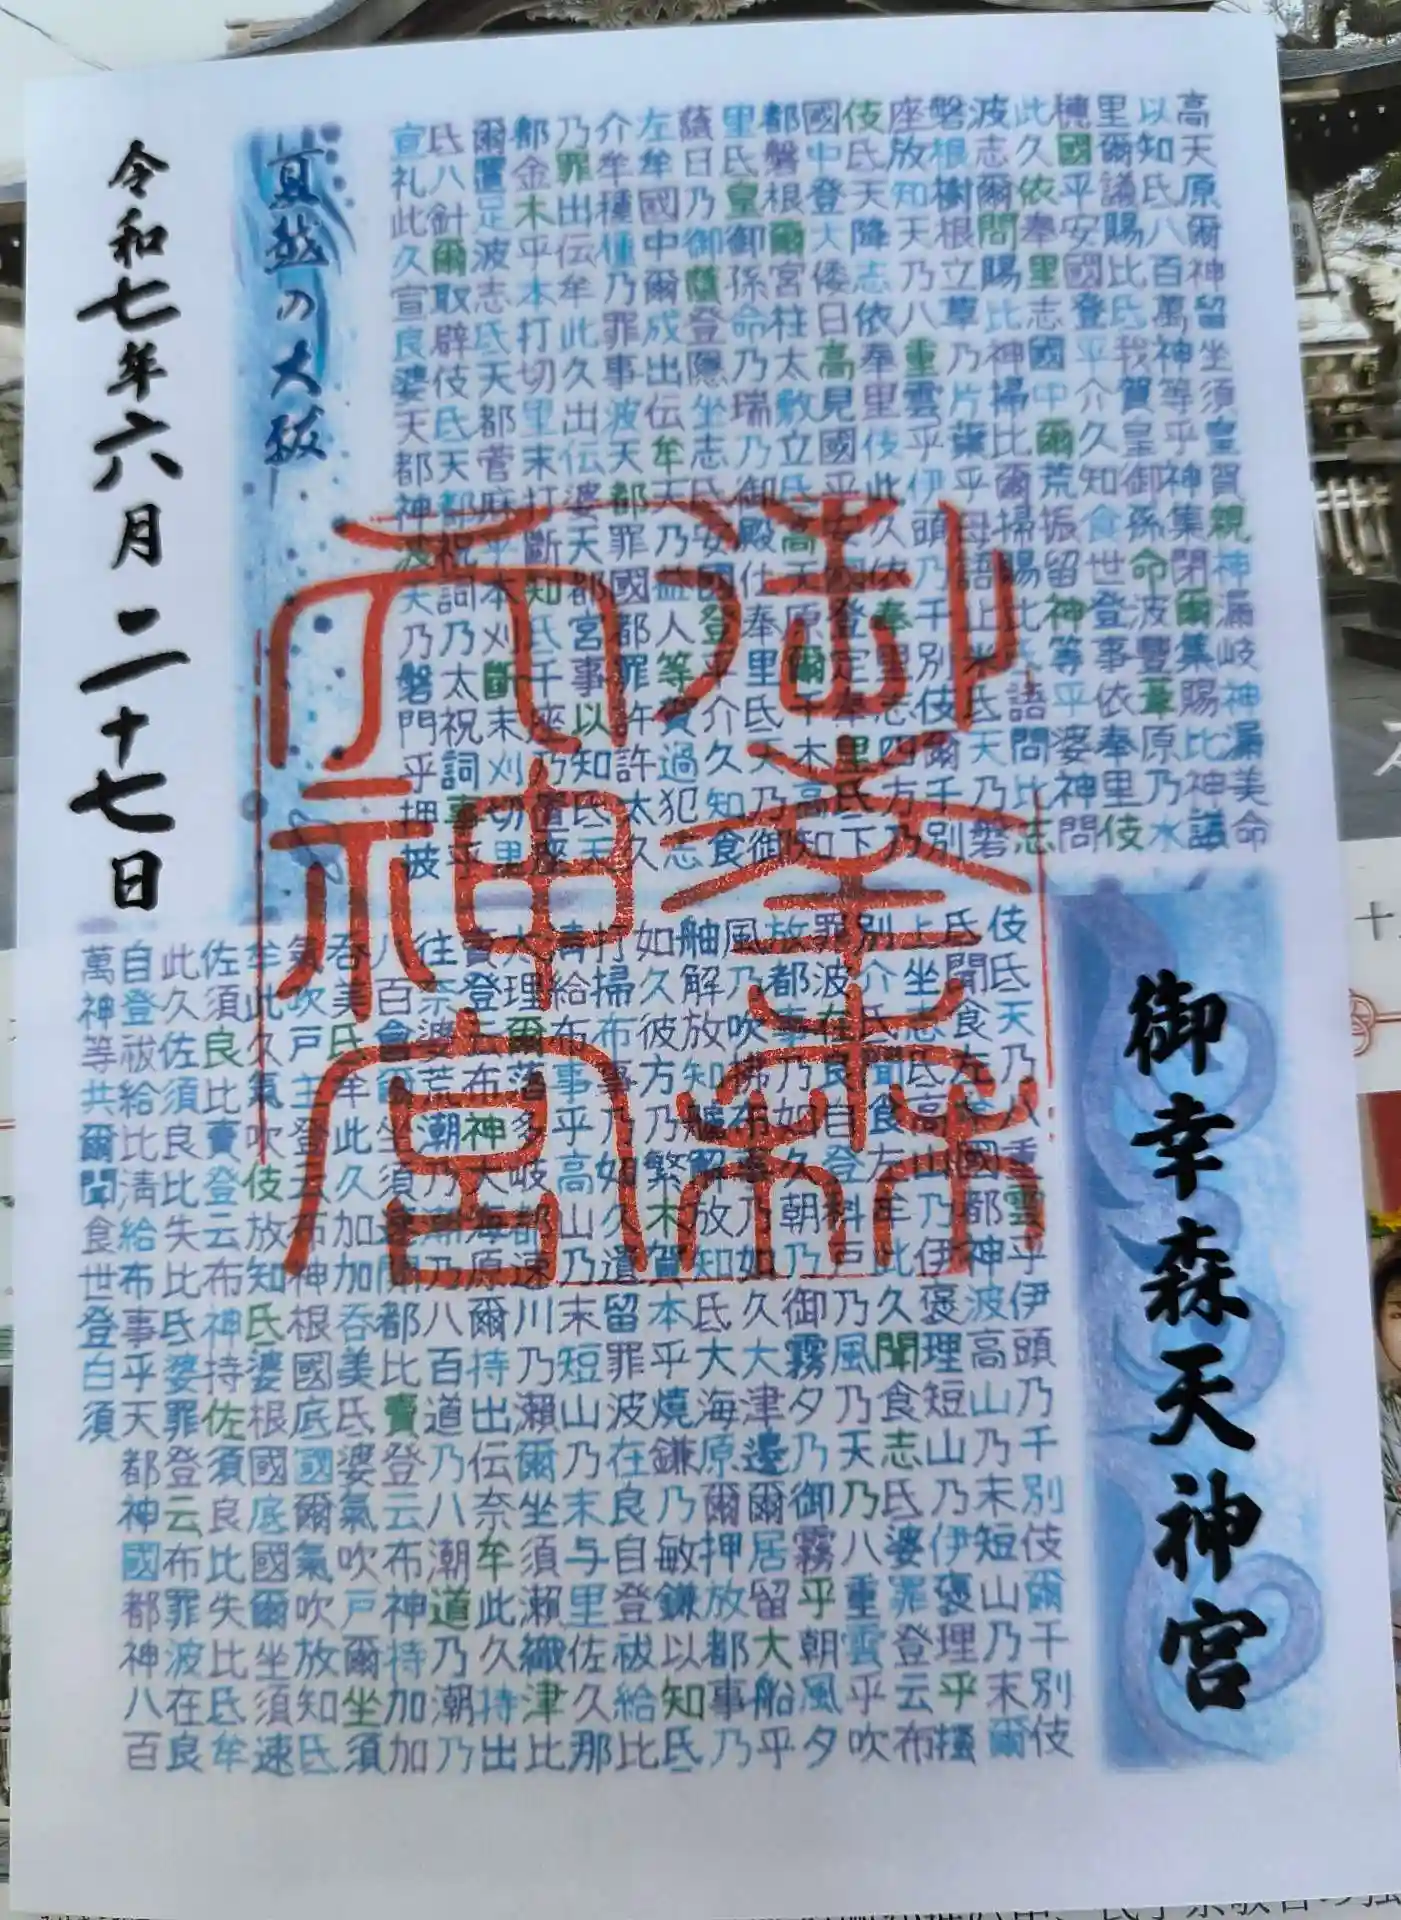 高天原爾神留坐須皇賀親神漏岐神漏美命
以知氐八百萬神等乎神集閉爾集賜比神議
里爾議賜比氐我賀皇御孫命波豐葦原乃水
穗國乎安國登平介久知食世登事依奉里伎
此久依奉里志國中爾荒振留神等乎婆神問
波志爾問賜比神掃比爾掃賜比氐語問比志
磐根樹根立草乃片葉乎母語止米氐天乃磐
座放知天乃八重雲乎伊頭乃千別伎爾千別
伎氐天降志依奉里伎此久依奉里志四方乃
國中登大倭日高見國乎安國登定奉里氐下
都磐根爾宮柱太敷立氐高天原爾千木高知
里氐皇御孫命乃瑞乃御殿仕奉里氐天乃御
蔭日乃御蔭登隱坐志氐安國登平介久知食
左牟國中爾成出伝牟天乃益人等賀過犯志
介牟種種乃罪事波天都罪國都罪許許太久
乃罪出伝牟此久出伝婆天都宮事以知氐天
都金木乎本打切里末打斷知氐千座乃置座
爾置足波志氐天都菅麻乎本刈斷末刈切里
氐八針爾取辟伎氐天都祝詞乃太祝詞事乎
宣礼此久宣良婆天都神波天乃磐門乎押披
夏越の大祓
令和七年六月二十七日
御幸森天神宮
御幸森
天神宮
伎氐天乃八重雲乎伊頭乃千別伎爾千別伎
氐聞食左牟國都神波高山乃末短山乃末爾
上坐志氐高山乃伊褒理短山乃伊褒理乎搔
別介氐聞食左牟此久聞食志氐婆罪登云布
罪波在良自登科戸乃風乃天乃八重雲乎吹
放都事乃如久朝乃御霧夕乃御霧乎朝風夕
風乃吹拂布事乃如久大津邊爾居留大船乎
舳解放知艫解放知氐大海原爾押放都事乃
如久彼方乃繁木賀本乎燒鎌乃敏鎌以知氐
打掃布事乃如久遺留罪波在良自登祓給比
清給布事乎高山乃末短山乃末与里佐久那
大理爾落多岐都速川乃瀨爾坐須瀨織津比
賣登云布神大海原爾持出伝奈牟此久持出
往奈婆荒潮乃潮乃八百道乃八潮道乃潮乃
八百會爾坐須速開都比賣登云布神持加加
呑美氐牟此久加加呑美氐婆氣吹戸爾坐須
氣吹戸主登云布神根國底國爾氣吹放知氐
牟此久氣吹放知氐婆根國底國爾坐須速
佐須良比賣登云布神持佐須良比失比氐牟
此久佐須良比失比氐婆罪登云布罪波在良
自登祓給比淸給布事乎天都神國都神八百
萬神等共爾聞食世登白須